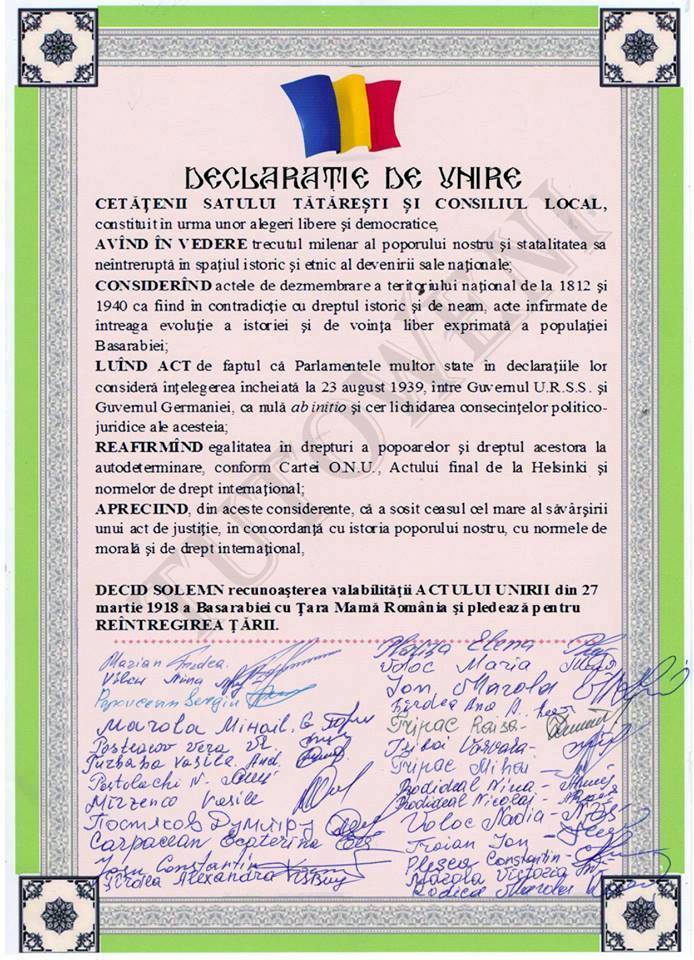 DECLARATIE DE UNIRE
CETĂŢENII SATULUI TĂTĂREŞTI ŞI CONSILIUL LOCAL,
constituit în urma unor alegeri libere şi democratice,
AVÎND ÎN VEDERE trecutul milenar al poporului nostru şi statalitatea sa
neîntreruptă în spaţiul istoric şi etnic al devenirii sale naţionale;
CONSIDERÎND actele de dezmembrare a teritoriului naţional de la 1812 şi
1940 ca fiind în contradicţie cu dreptul istoric şi de neam, acte infirmate de
întreaga evoluţie a istoriei şi de voinţa liber exprimată a populaţiei
Basarabiei;
LUÎND ACT de faptul că Parlamentele multor state în declaraţiile lor
consideră înţelegerea încheiată la 23 august 1939, între Guvernul U.R.S.S. şi
Guvernul Germaniei, ca nulă ab initio şi cer lichidarea consecinţelor politico-
juridice ale acesteia;
REAFIRMÎND egalitatea în drepturi a popoarelor şi dreptul acestora la
autodeterminare, conform Cartei O.N.U., Actului final de la Helsinki şi
normelor de drept internaţional;
APRECIIND, din aceste considerente, că a sosit ceasul cel mare al săvârşirii
unui act de justiţie, în concordanţă cu istoria poporului nostru, cu normele de
morală şi de drept internaţional,
DECID SOLEMN recunoaşterea valabilităţii ACTULUI UNIRII din 27
martie 1918 a Basarabiei cu Ţara Mamă România şi pledează pentru
REÎNTREGIREA ŢĂRII.
Marian
Nina
Popovceanu Sergiu
Marola Mihail
Vera
Vasile And.
Postolachi N.
Mirzenco Vasile
Постяков Думитру
Carpacean Ecaterina
Constantin
Alexandra
Elena
Voloc Maria
Ion Marola
Ana
Tripac Raisa
Tiboi Varvara
Tripac Mihai
Bodideal Nina
Bodideal Nicolai
Voloc Nadia
Troian Ion
Plesca Constantin
Marola Victoria
Rodica Marola